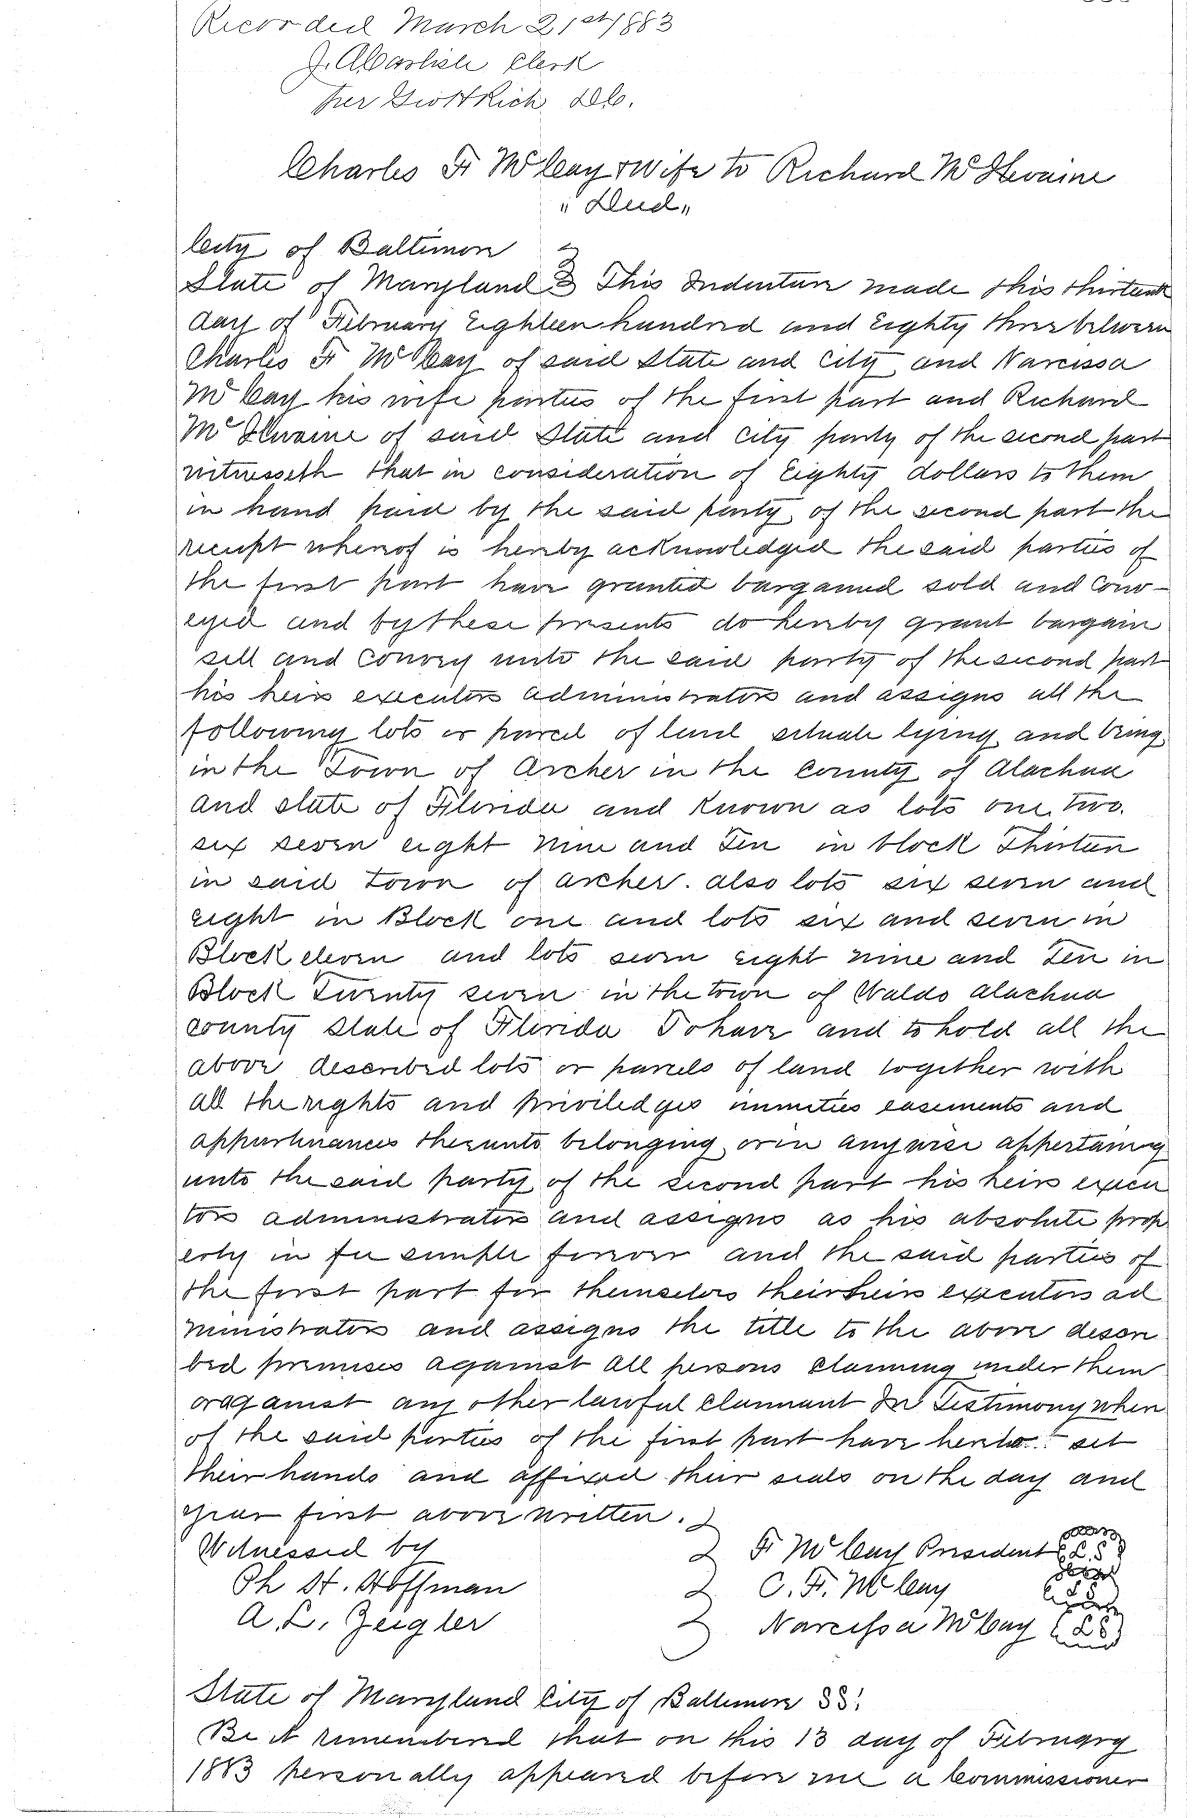 Recorded March 21st 1883
J. A. Carlisle Clerk
per Geo H Rich D.C.
Charles F McCay & wife to Richard McIlvaine
"Deed"
City of Baltimore
State of Maryland } This Indenture made this thirteenth
day of February Eighteen hundred and Eighty three between
Charles F McCay of said State and City and Narcissa
McCay his wife parties of the first part and Richard
McIlvaine of said State and City party of the second part
witnesseth that in consideration of Eighty dollars to them
in hand paid by the said party of the second part the
receipt whereof is hereby acknowledged the said parties of
the first part have granted bargained sold and conv-
eyed and by these presents do hereby grant bargain
sell and convey unto the said party of the second part
his heirs executors administrators and assigns all the
following lots or parcel of land situate lying and being
in the Town of Archer in the County of Alachua
and state of Florida and known as lots one, two.
six seven eight nine and Ten in block Thirteen
in said town of archer. also lots six seven and
eight in Block one and lots six and seven in
Block eleven and lots seven eight nine and Ten in
Block Twenty seven in the town of Waldo Alachua
county state of Florida To have and to hold all the
above described lots or parcels of land together with
all the rights and priviledges immities easements and
appurtenances thereunto belonging or in anywise appertaing
unto the said party of the second part his heirs execu
tors administrators and assigns as his absolute prop
erty in fee simple forever and the said parties of
the first part for themselves their heirs executors ad
ministrators and assigns the title to the above descri
bed premises against all persons claiming under them
or against any other lawful claimant In Testimony where
of the said parties of the first part have hereto set
their hands and affixed their seals on the day and
year first above written.
Witnessed by F McCay President L.S
Ph H. Hoffman C. F. McCay L S
A. L. Zeigler Narcissa McCay L S
State of Maryland City of Baltimore SS:
Be it remembered that on this 13 day of February
1883 personally appeared before me a Commissioner